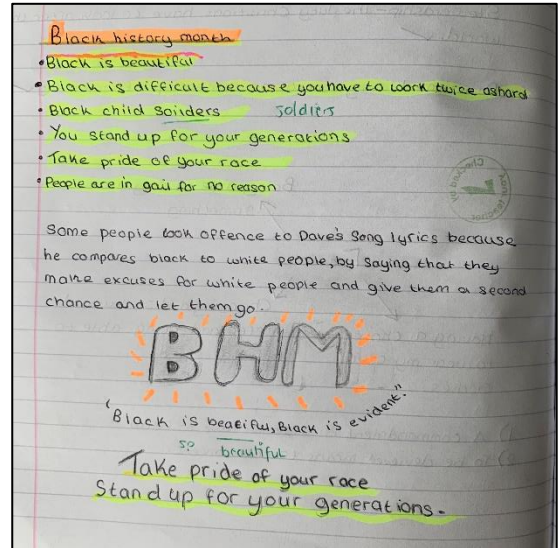 Black history month
• Black is beautiful
• Black is difficult because you have to work twice as hard
• Black child soilders soldiers
• You stand up for your generations
• Take pride of your race
• People are in gail for no reason
Some people took offence to Dave's song lyrics because
he compares black to white people, by saying that they
make excuses for white people and give them a second
chance and let them go.
BHM
"Black is beatiful, Black is evident."
so beautiful
Take pride of your race
Stand up for your generations.